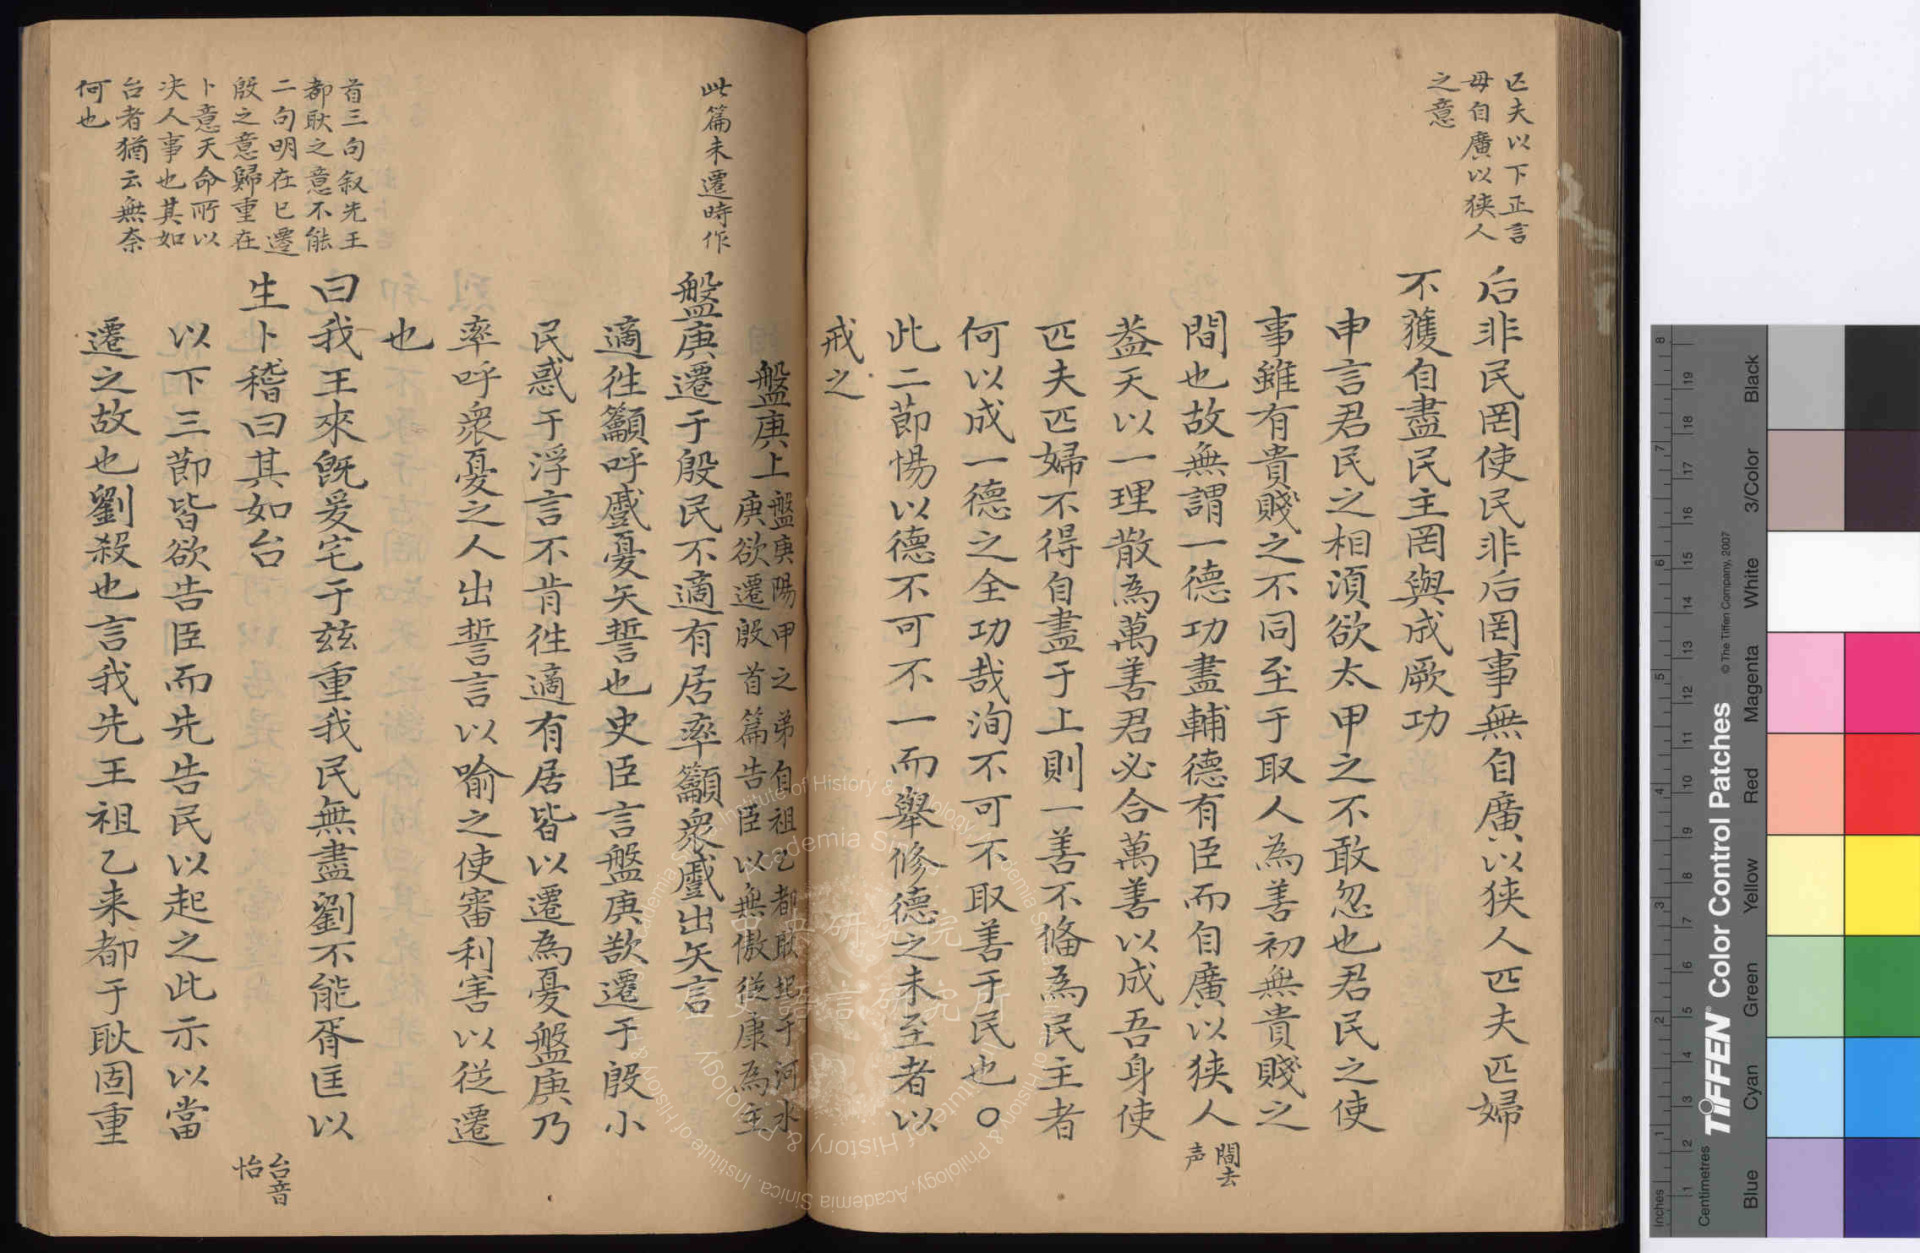 匹夫以下正言
毋自廣以狹人
之意
后非民罔使民非后罔事無自廣以狹人匹夫匹婦
不獲自盡民主罔與成厥功
申言君民之相須欲太甲之不敢忽也君民之使
事雖有貴賤之不同至于取人為善初無貴賤之
間也故無謂一德功盡輔德有臣而自廣以狹人
間去
声
葢天以一理散為萬善君必合萬善以成吾身使
匹夫匹婦不得自盡于上則一善不俻為民主者
何以成一德之全功哉洵不可不取善于民也○
此二節惕以德不可不一而舉修德之未至者以
戒之
此篇未遷時作
盤庚上
盤庚陽甲之弟自祖乙都耿圯于河水
庚欲遷殷首篇告臣以無傲從康為主
盤庚遷于殷民不適有居率籲眾慼出矢言
適徃籲呼慼憂矢誓也史臣言盤庚欲遷于殷小
民惑于浮言不肯徃適有居皆以遷為憂盤庚乃
率呼衆憂之人出誓言以喻之使審利害以從遷
也
首三句叙先王
都耿之意不能
二句明在已遷
殷之意歸重在
卜意天命所以
决人事也其如
台者猶云無奈
何也
曰我王來既爰宅于兹重我民無盡劉不能胥匡以
生卜稽曰其如台
台音
怡
以下三節皆欲告臣而先告民以起之此示以當
遷之故也劉殺也言我先王祖乙来都于耿固重
Institute of History & Philology, Academia Sinica
中央研究院
歷史語言研究所
TIFFEN Color Control Patches
© The Tiffen Company, 2007
Inches
Centimetres
Blue
Cyan
Green
Yellow
Red
Magenta
White
3/Color
Black